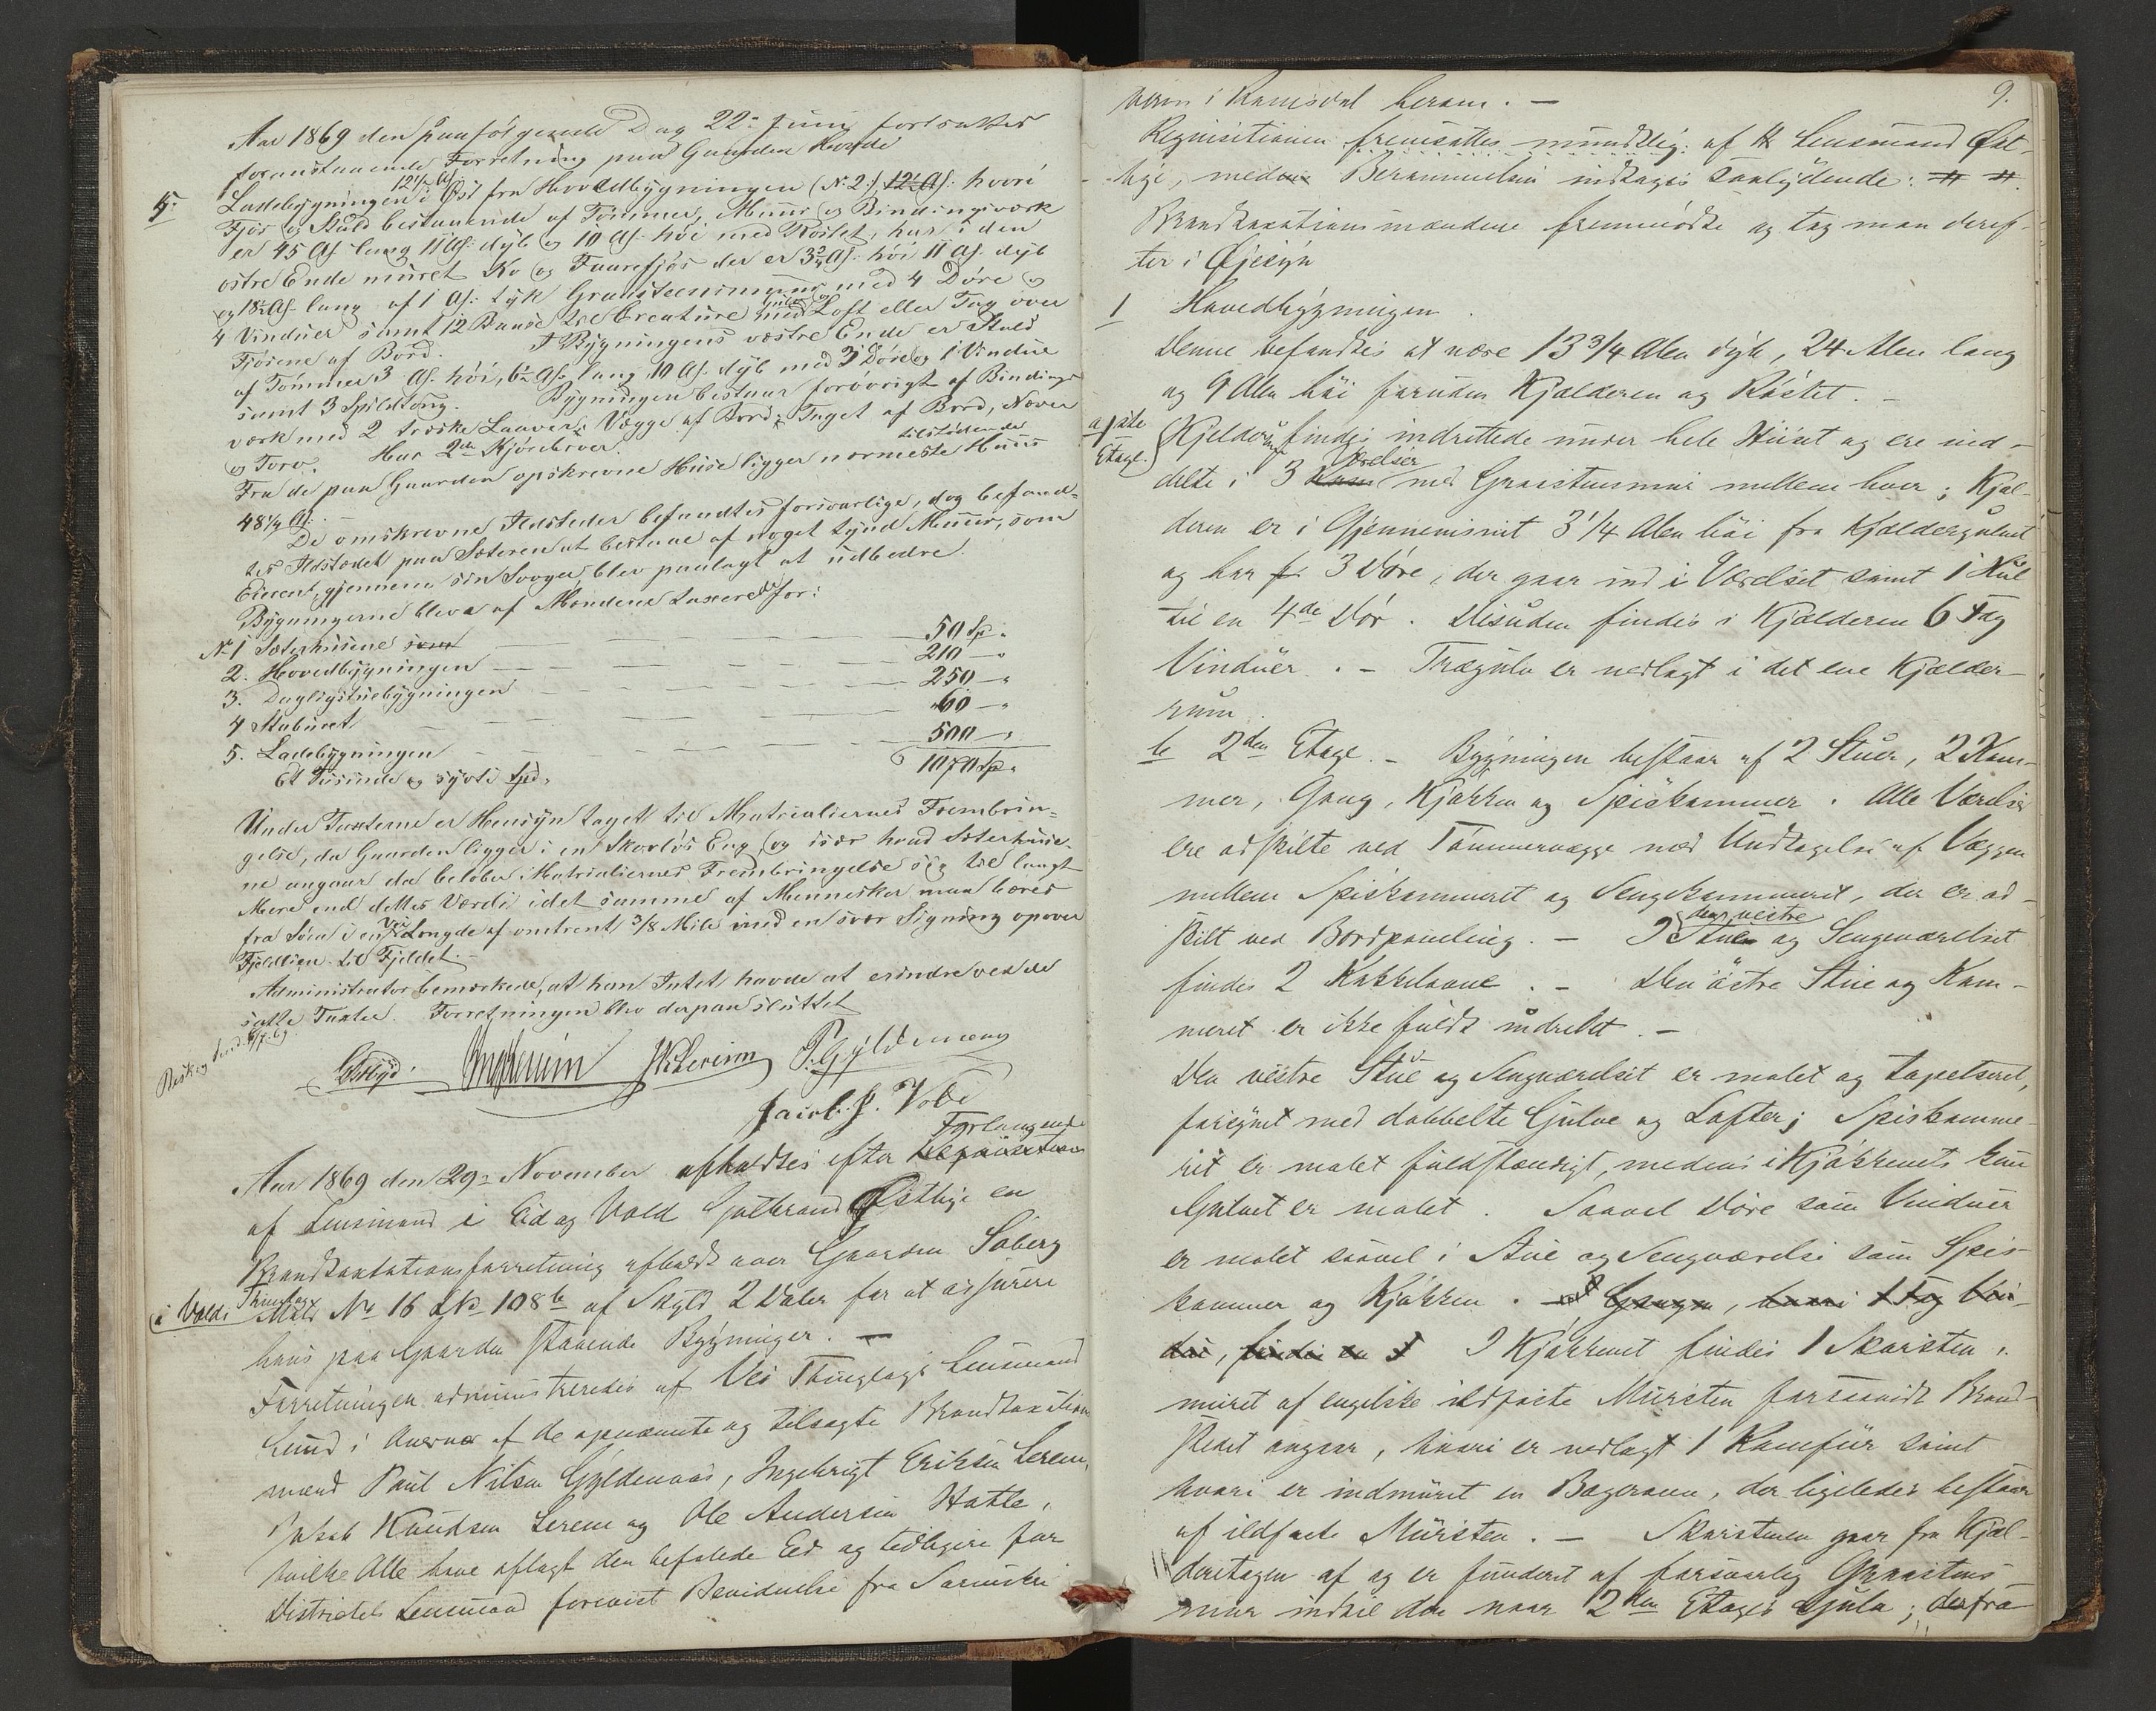 Aar 1869 den paafölgende Dag 22de Juni fortsattes
foranstaaende Forretning paa Gaarden
5: Ladebygningen 12 1/2 Al: i Öst fra Hovedbygningen (N: 2:) 12 1/2 Al: hvori
Fjøs og Stald bestaaende af Tömmer, Muur og Bindingsværk
er 45 Al: lang 11 Al: dyb og 10 Al: höi med Röstet, har i den
østre Ende muret Ko og Faarefjös der er 3 3/4 Al: höi 11 Al: dyb
og 18 1/2 Al: lang af 1 Al: tyk Graasteensmuur med 4 Döre og
4 Vinduer samt 12 Baase til Creature med Gulv og Loft eller Tag over
Fjösene af Bord. I Bygningens vestre Ende er Stald
af Tömmer 3 Al: höi, 6 1/2 Al: lang 10 Al: dyb med 3 Döre og 1 Vindue
samt 3 Spildtoug. Bygningen bestaar forövrigt af Bindings
værk med 2 Laaver, Vægge af Bord, Taget af Bord, Næver
og Torv. Har 2de Kjörebroer.
Fra de paa Gaarden opskrevne Huse ligger nærmeste tilstødende Huus
48 1/4 Al: —
De omskrevne Ildsteder befandtes forsvarlige, dog befand-
tes Ildstedet paa Sæteren at bestaae af noget tynd Muur, som
Eieren, gjennem sin Svoger blev paalagt at udbedre.
Bygningerne bleve af Mændene taxerede for:
No 1 Sæterhusene som — 50 Sp „
2. Hovedbygningen — 210 — „
3. Dagligstuebygningen — 250 — „
4 Staburet — 60 — „
5. Ladebygningen — 500 — „
Et Tusinde og syvti Spd. 1070 Sp „
Under Taxterne er Hensyn taget til Matrialiernes Frembrin-
gelse, da Gaarden ligger i en Skovløs Eng og især hvad Sæterhuse-
ne angaar da beløber Matrialiernes Frembringelse sig til langt
Mere end dettes Værdi idet samme af Mennesker maa bæres
fra Søen i en Vei Længde af omtrent 3/8 Mile med en svær Stigning opover
Fjeldlien til Fjeldet. —
Administrator bemærkede, at han Intet havde at erindre ved de
satte Taxter. Forretningen blev derpaa sluttet
Besk: 6/7. 69
P. Gyldenaas
Jacob. P. Vold
Aar 1869 den 29de November afholdtes efter Requisition Forlangende
af Lensmand i Eid og Vold Gulbrand Østbye en
Brandtaxtationsforretning afholdt over Gaarden Soberg
i Volds Thinglag Matr No 16 LNo 108b af Skyld 2 Daler for at assurere
hans paa Gaarden staaende Bygninger. —
Forretningen administreredes af Veö Thinglags Lensmand
Lund i Overvær af de opnævnte og tilsagte Brandtaxations
mænd Paul Nilsen Gyldenaas, Ingebrigt Eriksen Lerem,
Jakob Knudsen Lerem og Ole Andersen Hatle,
hvilke Alle have aflagt den befalede Eed og tidligere for
Distriktets Lensmand forevist Bevidnelse fra Sorenskri
9.
veren i Romsdal herom. —
Requisitionen fremsattes mundtlig af Lensmand Øst-
bye, medens Berammelsen indtages saalydende:
Brandtaxationsmændene fremmödte og tog man deref-
ter i Øjesyn
1 Hovedbygningen.
Denne befandtes at være 13 3/4 Alen dyb, 24 Alen lang
og 9 Alen höi foruden Kjælderen og Röstet. —
a, 1ste Etage. Kjelderum findes indrettede under hele Huset og ere ind-
delte i 3 Rum Værelser med Graastensmur mellem hver; Kjæl-
deren er i Gjennemsnit 3 1/4 Alen höi fra Kjældergulvet
og har 3 Döre, der gaar ind i Værelset samt 1 Hul
til en 4de Dör. Desuden findes i Kjælderen 6 Fag
Vinduer. — Trægulv er nedlagt i det ene Kjælder-
rum.
b 2den Etage. — Bygningen bestaar af 2 Stuer, 2 Kam-
mer, Gang, Kjøkken og Spiskammer. Alle Værelser
ere adskilte ved Tömmervægge med Undtagelse af Væggen
mellem Spiskammeret og Sengekammeret, der er ad-
skilt ved Bordpaneling. — I den vestre Stuen og Sengeværelset
findes 2 Kakkelovne. — Den östre Stue og Kam-
meret er ikke fuldt indredet. —
Den vestre Stue og Sengværelset er malet og tapetseret,
forsynet med dobbelte Gulve og Lofter; Spiskamme-
ret er malet fuldstændigt, medens i Kjøkkenets kun
Gulvet er malet. Saavel Döre som Vinduer
er malet saavel i Stue og Sengværelse som Spis-
kammer og Kjøkken. — Gangen, hvori 1 Fag Vin-
due, findes en I I Kjøkkenet findes 1 Skorsten,
muret af engelske ildfaste Mursten forsaavidt Brand-
stedet angaar, hvori er nedlagt 1 Komfür samt
hvori er indmuret en Bagerovn, der ligeledes bestaar
af ildfaste Mürsten. — Skorstenen gaar fra Kjæl-
dertagen af og er funderet af forsvarlig Graastens
mur indtil den naar 2den Etages Gulv; derfra